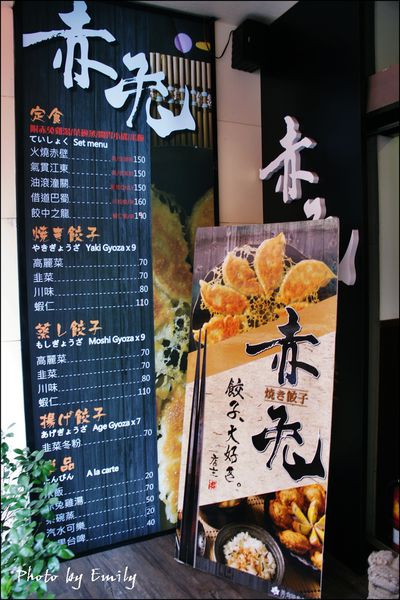 赤兎
定食
ていしょく Set menu
火燒赤壁 150
氣貫江東 150
油滾潼關 150
借道巴蜀 160
餃中之龍 190
焼き餃子
やきぎょうざ Yaki Gyoza x 9
高麗菜 70
韭菜 70
川味 80
蝦仁 110
蒸し餃子
もしぎょうざ Moshi Gyoza x 9
高麗菜 70
韭菜 70
川味 80
蝦仁 110
揚げ餃子
あげぎょうざ Age Gyoza x 7
韭菜冬粉 70
品
んぴん A la carte
飯 20
兔雞湯 50
碗蒸 40
汽水可樂 20
啤 50
赤兎
赤兎
焼き餃子
餃子、大好き。
Photo by Emily